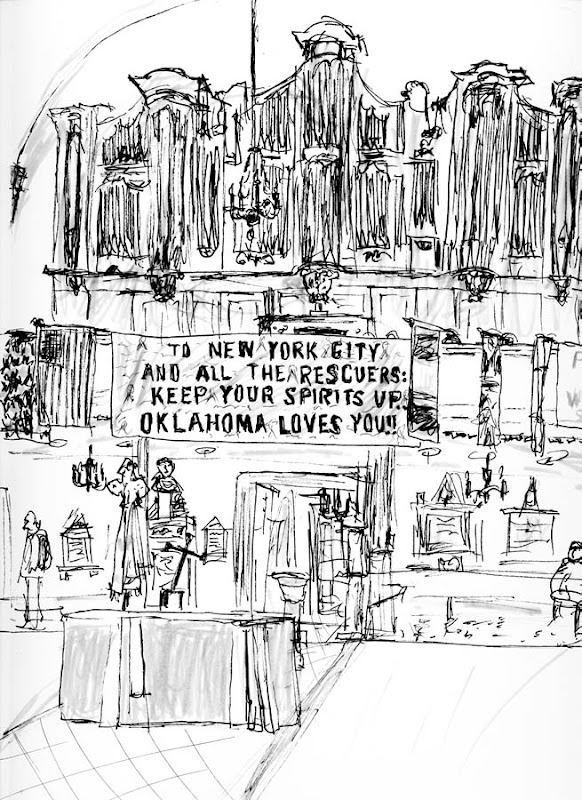 TO NEW YORK CITY
AND ALL THE RESCUERS:
KEEP YOUR SPIRITS UP.
OKLAHOMA LOVES YOU!!